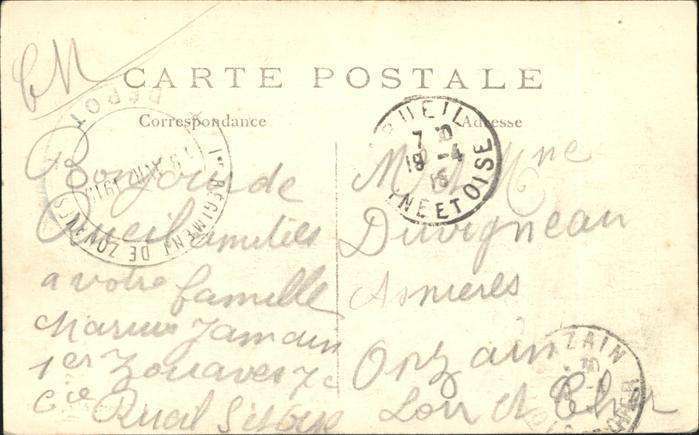 FM
CARTE POSTALE
Correspondance
Adresse
DÉPÔT
1er RÉGIMENT DE ZOUAVES
RUEIL
7 30
18 -4
15
SEINE ET OISE
Bonjour de
Rueil amitiés
a votre famille
Marius Jamain
1er Zouaves 7e
Cie Rueil S et Oise
M. & Mme
Duvigneau
Asnieres
Onzain
Loir et Cher
ONZAIN
LOIR ET CHER